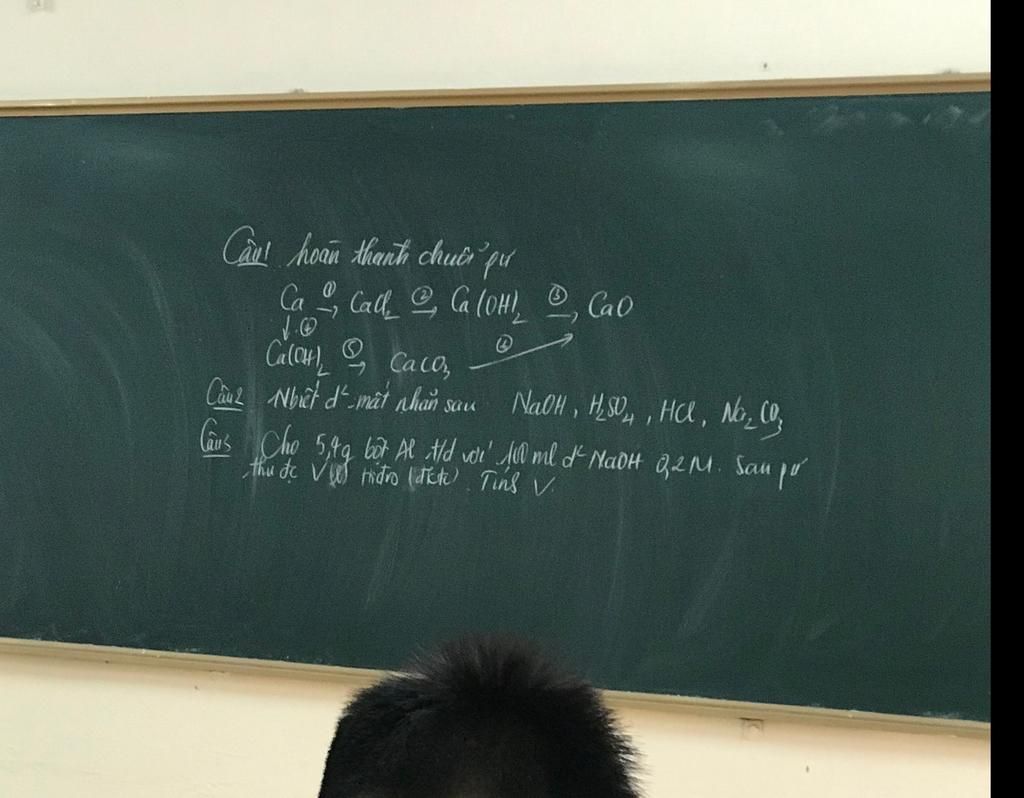 Câu1 hoàn thành chuỗi pư
Ca ①→ CaCl₂ ②→ Ca(OH)₂ ③→ CaO
↓④
Ca(OH)₂ ⑤→ CaCO₃ ⑥→
Câu2 Nbiết d² mất nhãn sau NaOH, H₂SO₄, HCl, Na₂CO₃
Câu3 Cho 5,4g bột Al t/d với 100 ml d² NaOH 0,2M. Sau pư
thu đc V(l) Hiđro (đktc). Tính V.